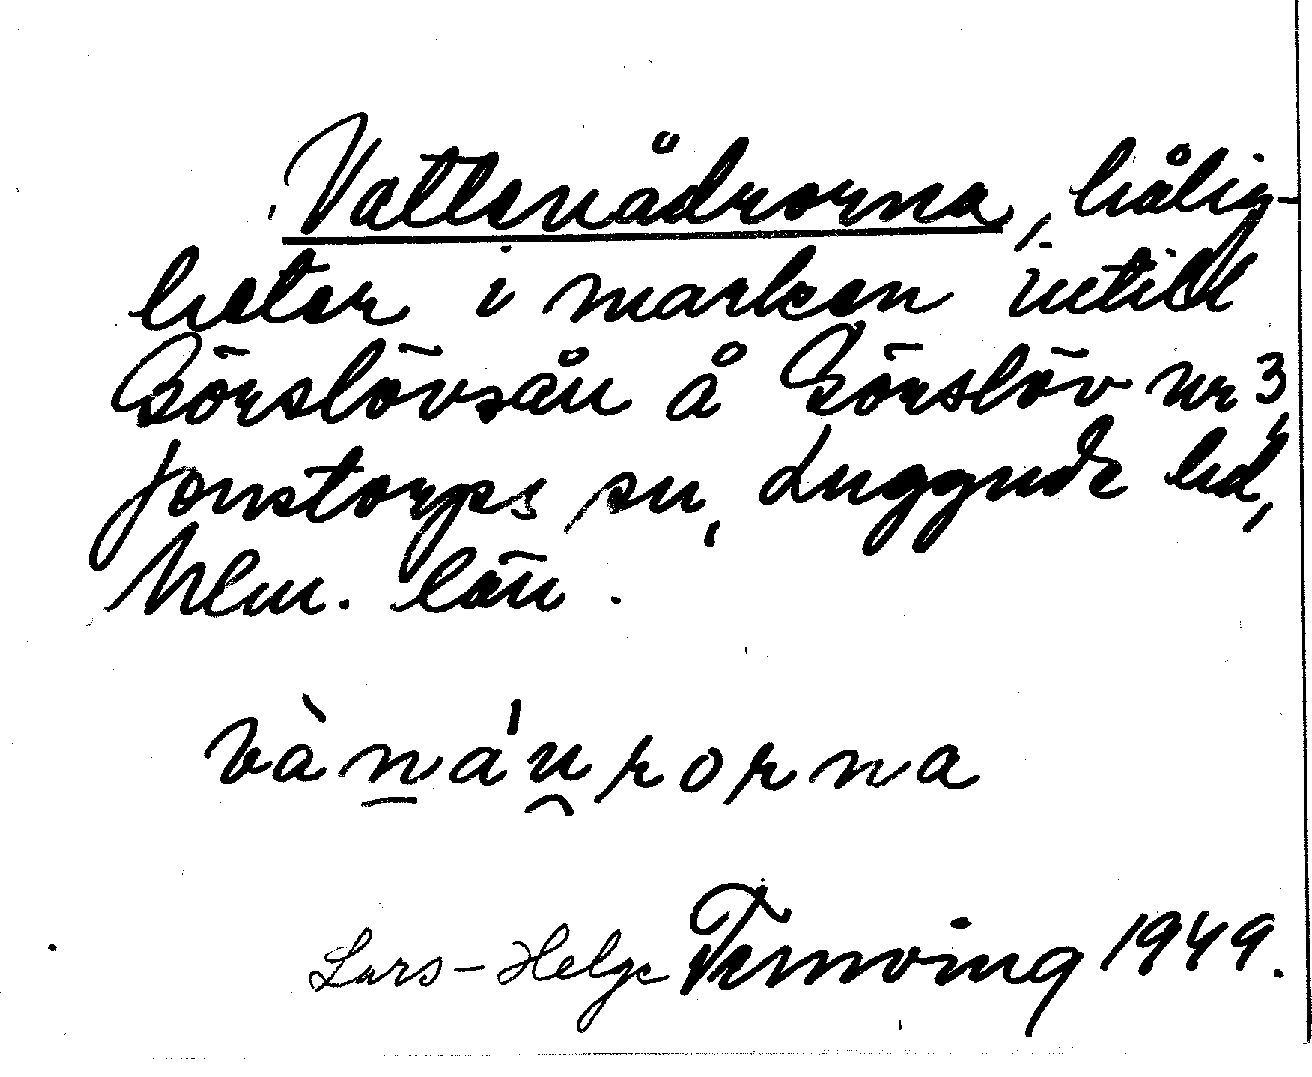 Vattenådrorna, hålig-
heter i marken intill
Görslövsån å Görslöv nr 3,
Jonstorps sn, Luggude hd,
Mlm. län.
vànáu̯rorna
Lars-Helge Ternving 1949.